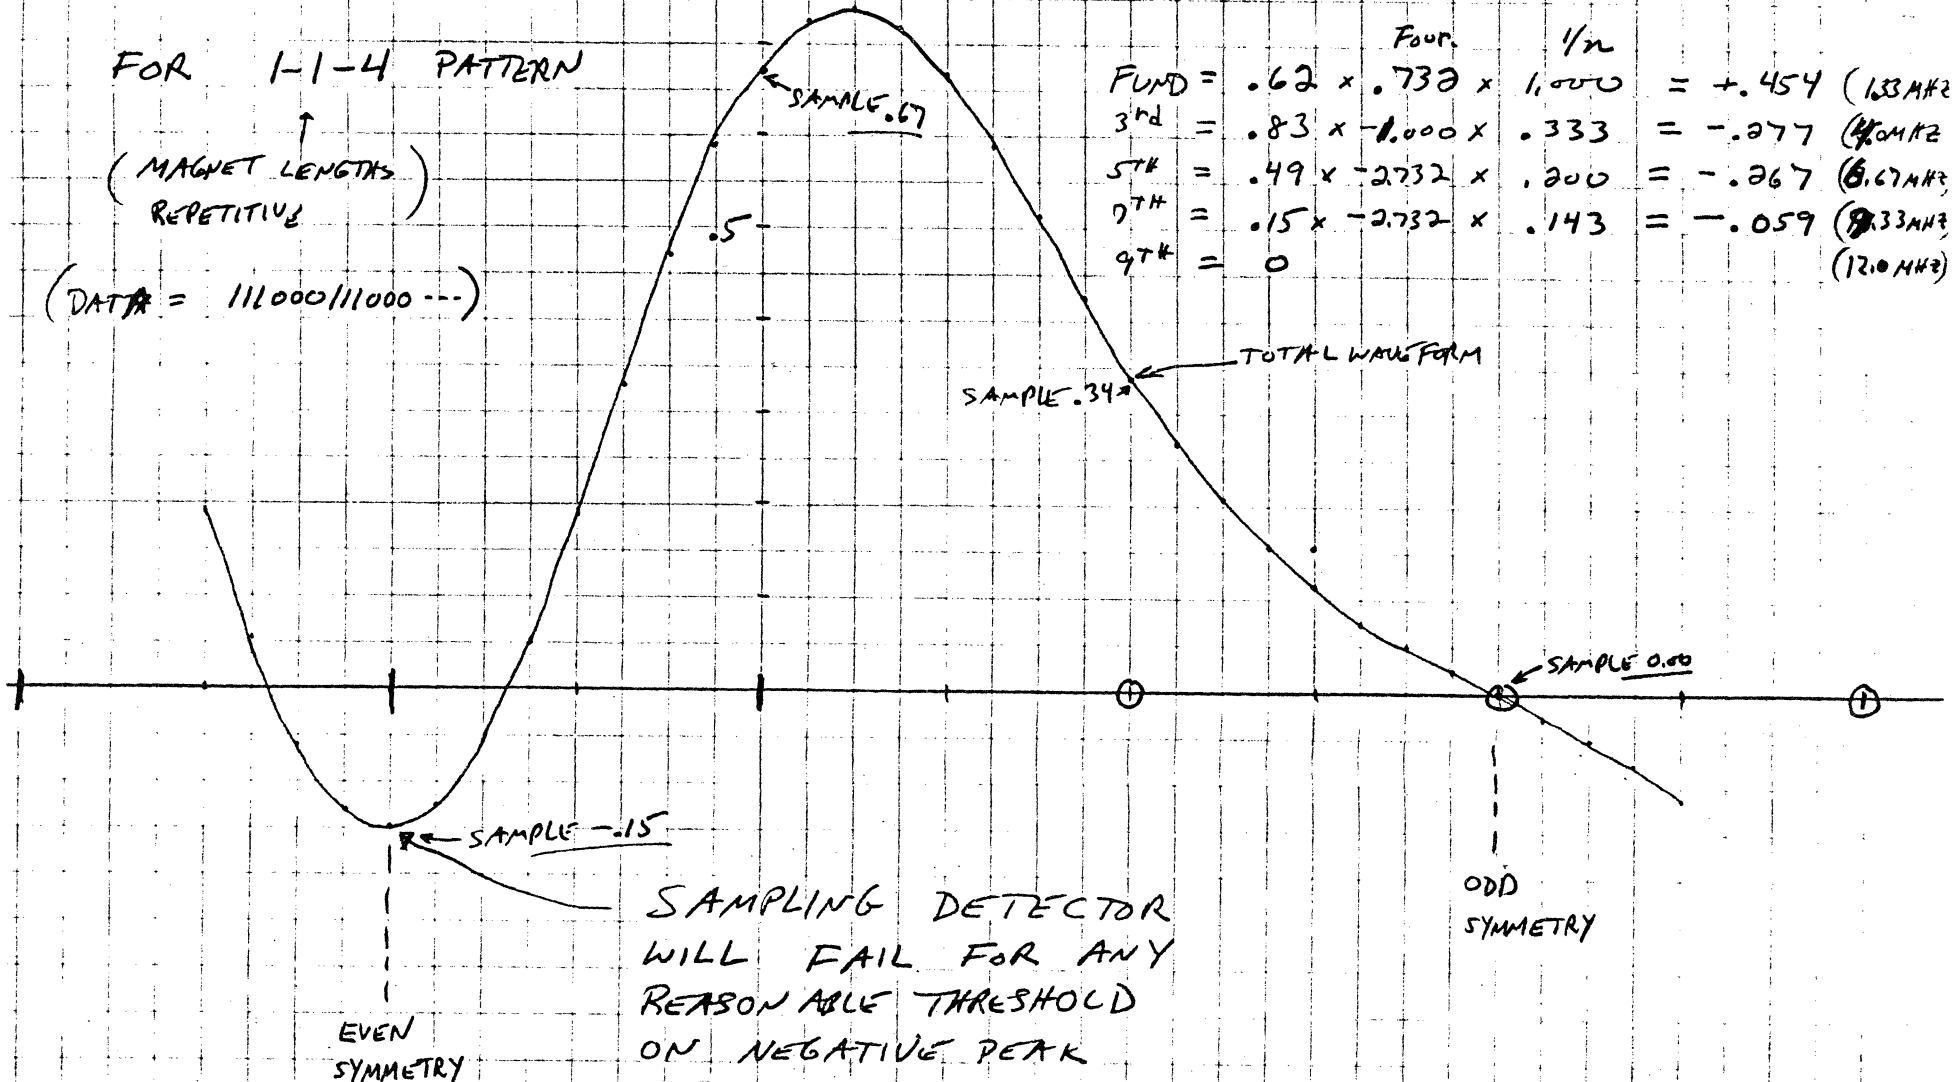 FOR 1-1-4 PATTERN
(MAGNET LENGTHS
REPETITIVE)
(DATA = 111000111000 ---)
Four. 1/n
FUND = .62 x .732 x 1.000 = +.454 (1.33 MHZ
3rd = .83 x -1.000 x .333 = -.277 (4.0 MHZ
5TH = .49 x -2.732 x .200 = -.267 (6.67 MHZ)
7TH = .15 x -2.732 x .143 = -.059 (9.33 MHZ)
9TH = 0 (12.0 MHZ)
SAMPLE .67
.5
TOTAL WAVEFORM
SAMPLE .34
SAMPLE 0.00
SAMPLE -.15
SAMPLING DETECTOR
WILL FAIL FOR ANY
REASONABLE THRESHOLD
ON NEGATIVE PEAK
ODD
SYMMETRY
EVEN
SYMMETRY